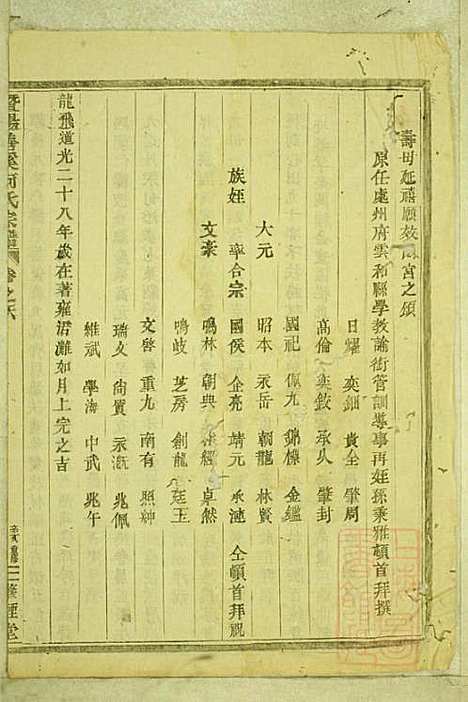 壽母延禧願效閟宮之頌
原任處州府雲和縣學教諭銜管訓導事再姪孫秉雅頓首拜撰
日耀 奕鈿 貴全 肇周
高倫 奕鈫 承久 肇封
國祀 佩九 錦標 金鑑
大元 昭本 承岳 朝龍 林賢
族姪 率合宗 國俟 企亮 靖元 承漣 仝頓首拜祝
文豪 鳴林 朝典 經 卓然
鳴岐 芝房 創龍 廷玉
文啓 重九 南有 照紳
瑞文 尚賓 承 兆佩
維斌 學海 中武 兆午
龍飛道光二十八年歲在著雍涒灘如月上完之吉
暨陽 溪何氏宗譜 卷之
重修 三 堂